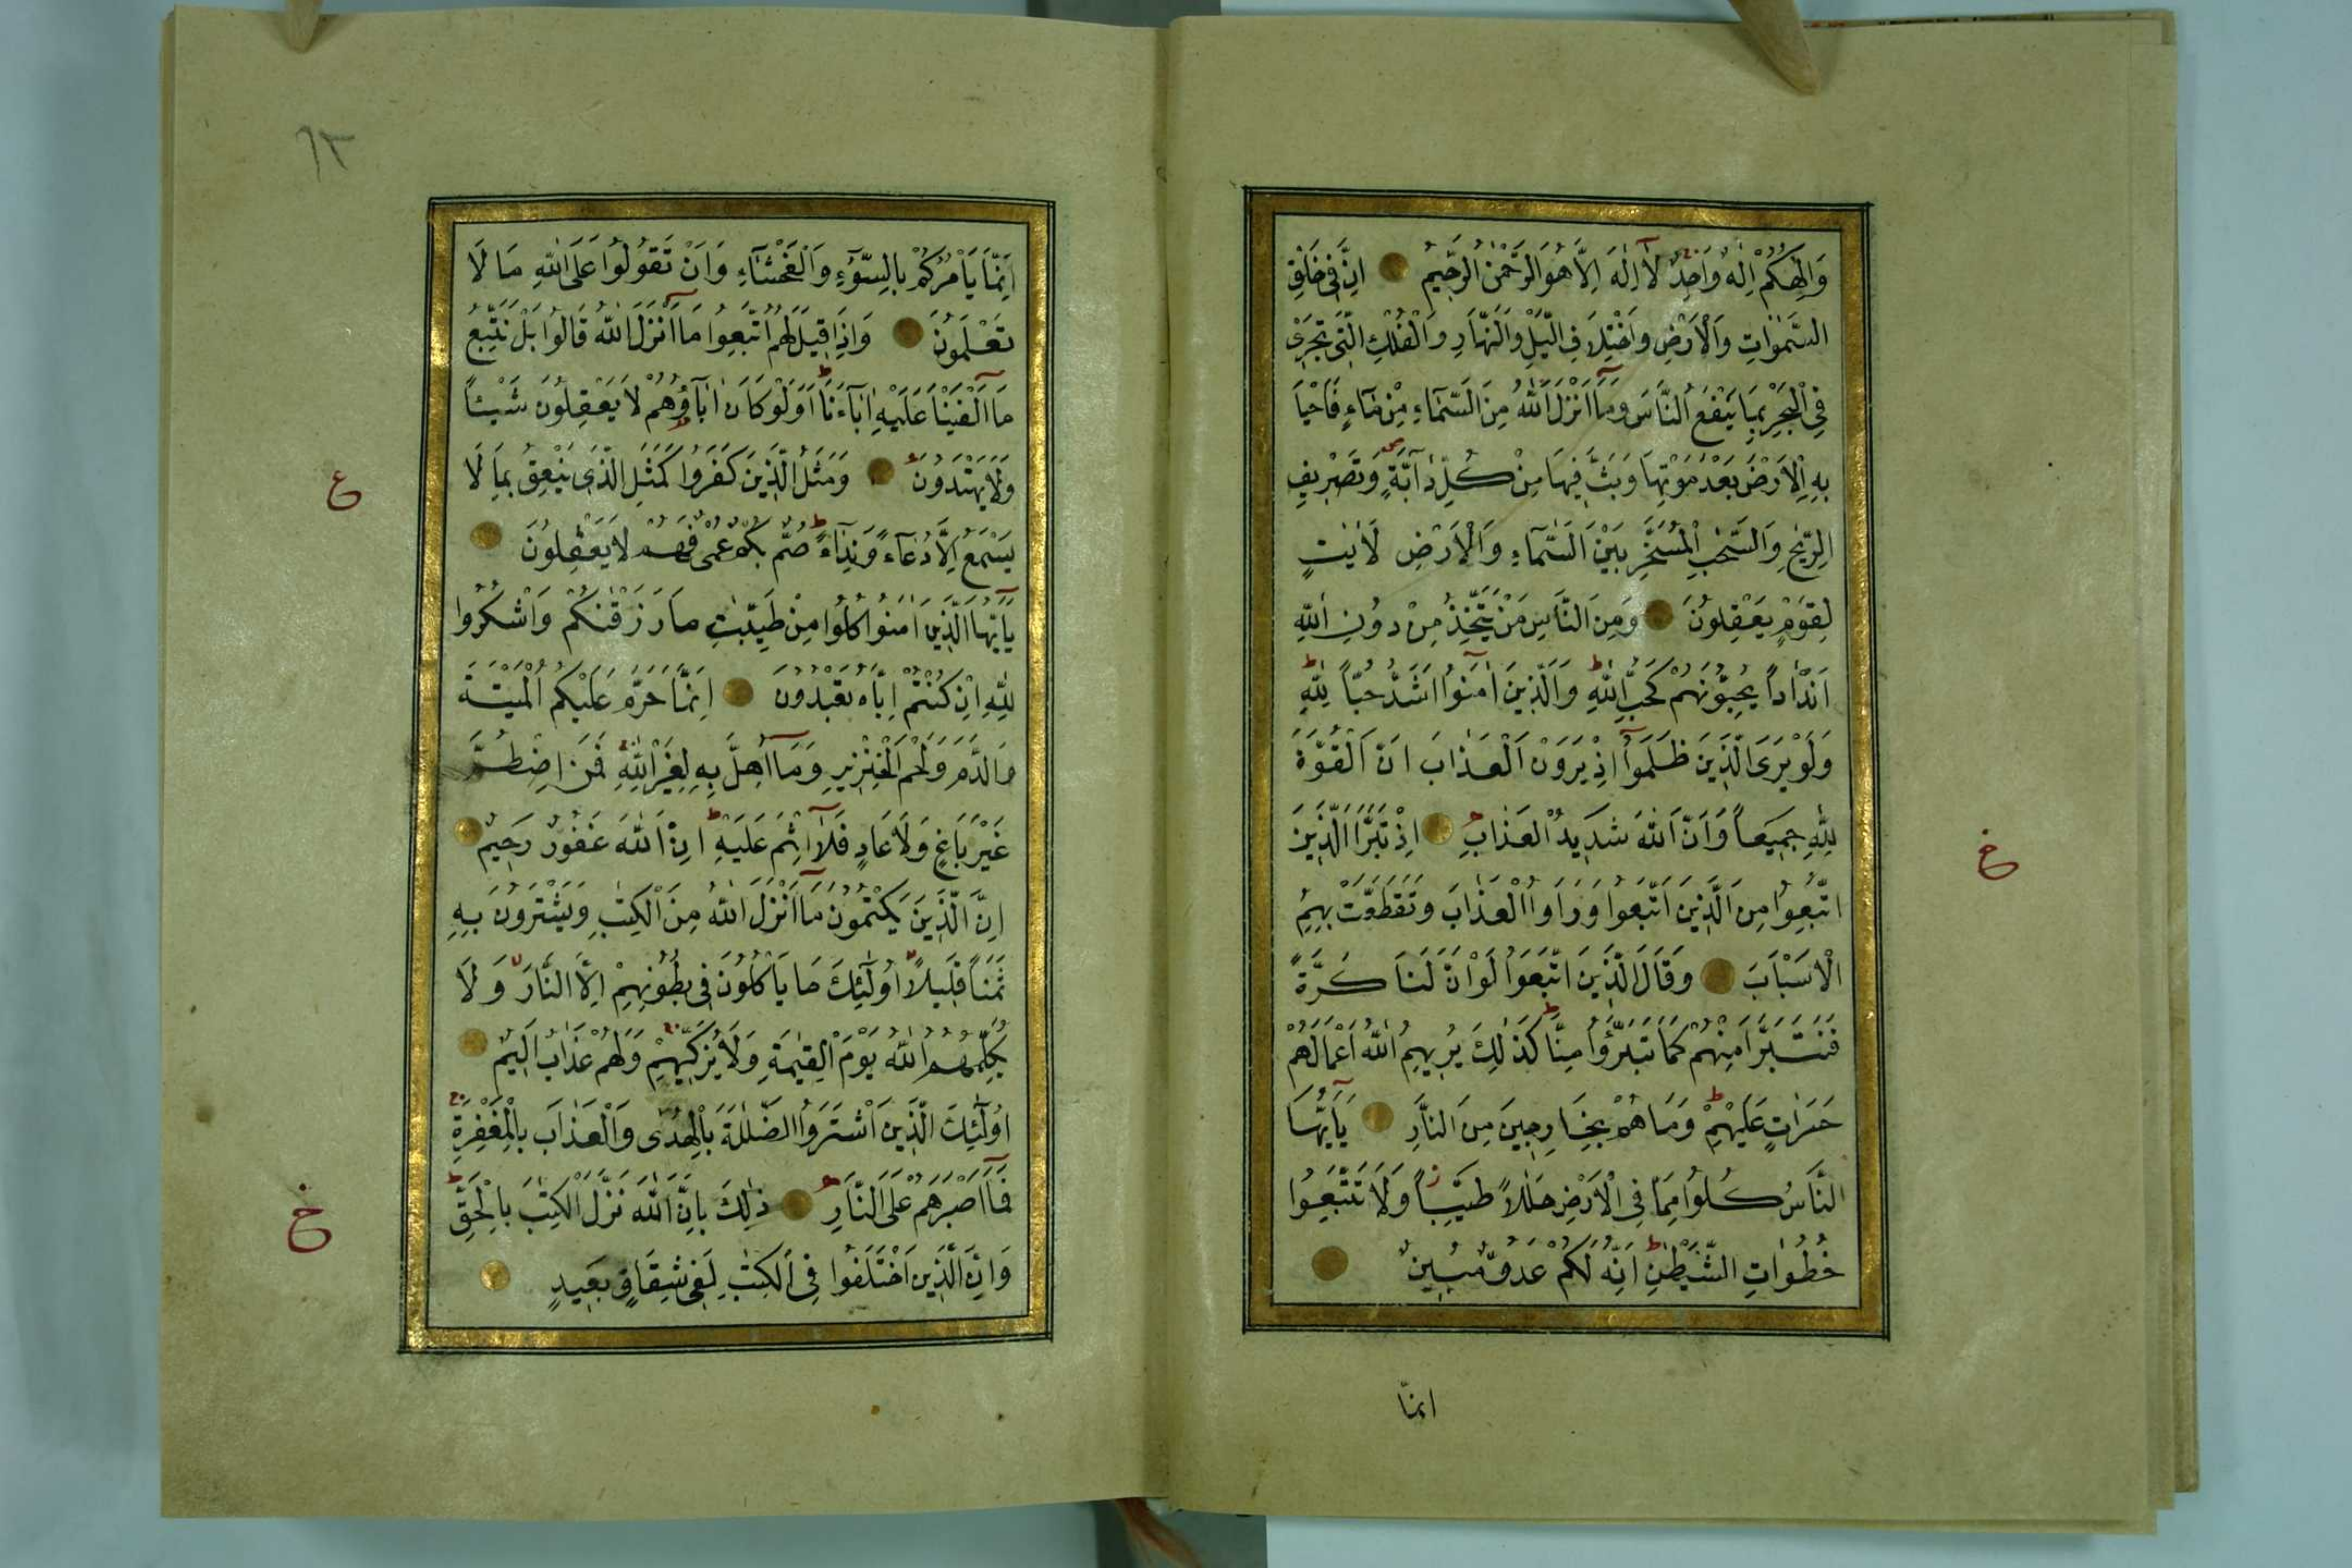 وَاِلٰهُكُمْ اِلٰهٌ وَاحِدٌ لَآ اِلٰهَ اِلَّا هُوَ الرَّحْمٰنُ الرَّحِيمُ اِنَّ فِى خَلْقِ
السَّمٰوَاتِ وَالْاَرْضِ وَاخْتِلَافِ الَّيْلِ وَالنَّهَارِ وَالْفُلْكِ الَّتِى تَجْرِى
فِى الْبَحْرِ بِمَا يَنْفَعُ النَّاسَ وَمَآ اَنْزَلَ اللّٰهُ مِنَ السَّمَاءِ مِنْ مَاءٍ فَاَحْيَا
بِهِ الْاَرْضَ بَعْدَ مَوْتِهَا وَبَثَّ فِيهَا مِنْ كُلِّ دَآبَّةٍ وَتَصْرِيفِ
الرِّيٰحِ وَالسَّحَابِ الْمُسَخَّرِ بَيْنَ السَّمَآءِ وَالْاَرْضِ لَاٰيٰتٍ
لِقَوْمٍ يَعْقِلُونَ وَمِنَ النَّاسِ مَنْ يَتَّخِذُ مِنْ دُونِ اللّٰهِ
اَنْدَادًا يُحِبُّونَهُمْ كَحُبِّ اللّٰهِ وَالَّذِينَ اٰمَنُوا اَشَدُّ حُبًّا لِلّٰهِ
وَلَوْ يَرَى الَّذِينَ ظَلَمُوآ اِذْ يَرَوْنَ الْعَذَابَ اَنَّ الْقُوَّةَ
لِلّٰهِ جَمِيعًا وَاَنَّ اللّٰهَ شَدِيدُ الْعَذَابِ اِذْ تَبَرَّاَ الَّذِينَ
اتُّبِعُوا مِنَ الَّذِينَ اتَّبَعُوا وَرَاَوُا الْعَذَابَ وَتَقَطَّعَتْ بِهِمُ
الْاَسْبَابُ وَقَالَ الَّذِينَ اتَّبَعُوا لَوْ اَنَّ لَنَا كَرَّةً
فَنَتَبَرَّاَ مِنْهُمْ كَمَا تَبَرَّؤُا مِنَّا كَذٰلِكَ يُرِيهِمُ اللّٰهُ اَعْمَالَهُمْ
حَسَرَاتٍ عَلَيْهِمْ وَمَا هُمْ بِخَارِجِينَ مِنَ النَّارِ يَآ اَيُّهَا
النَّاسُ كُلُوا مِمَّا فِى الْاَرْضِ حَلٰلًا طَيِّبًا وَلَا تَتَّبِعُوا
خُطُوَاتِ الشَّيْطٰنِ اِنَّهُ لَكُمْ عَدُوٌّ مُبِينٌ
انمّا
خ
٦٢
اِنَّمَا يَاْمُرُكُمْ بِالسُّوٓءِ وَالْفَحْشَاءِ وَاَنْ تَقُولُوا عَلَى اللّٰهِ مَا لَا
تَعْلَمُونَ وَاِذَا قِيلَ لَهُمُ اتَّبِعُوا مَآ اَنْزَلَ اللّٰهُ قَالُوا بَلْ نَتَّبِعُ
مَآ اَلْفَيْنَا عَلَيْهِ اٰبَآءَنَا اَوَلَوْ كَانَ اٰبَآؤُهُمْ لَا يَعْقِلُونَ شَيْئًا
وَلَا يَهْتَدُونَ وَمَثَلُ الَّذِينَ كَفَرُوا كَمَثَلِ الَّذِى يَنْعِقُ بِمَا لَا
يَسْمَعُ اِلَّا دُعَآءً وَنِدَآءً صُمٌّ بُكْمٌ عُمْىٌ فَهُمْ لَا يَعْقِلُونَ
يَآ اَيُّهَا الَّذِينَ اٰمَنُوا كُلُوا مِنْ طَيِّبٰتِ مَا رَزَقْنٰكُمْ وَاشْكُرُوا
لِلّٰهِ اِنْ كُنْتُمْ اِيَّاهُ تَعْبُدُونَ اِنَّمَا حَرَّمَ عَلَيْكُمُ الْمَيْتَةَ
وَالدَّمَ وَلَحْمَ الْخِنْزِيرِ وَمَآ اُهِلَّ بِهِ لِغَيْرِ اللّٰهِ فَمَنِ اضْطُرَّ
غَيْرَ بَاغٍ وَلَا عَادٍ فَلَآ اِثْمَ عَلَيْهِ اِنَّ اللّٰهَ غَفُورٌ رَحِيمٌ
اِنَّ الَّذِينَ يَكْتُمُونَ مَآ اَنْزَلَ اللّٰهُ مِنَ الْكِتٰبِ وَيَشْتَرُونَ بِهِ
ثَمَنًا قَلِيلًا اُولٰٓئِكَ مَا يَاْكُلُونَ فِى بُطُونِهِمْ اِلَّا النَّارَ وَلَا
يُكَلِّمُهُمُ اللّٰهُ يَوْمَ الْقِيٰمَةِ وَلَا يُزَكِّيهِمْ وَلَهُمْ عَذَابٌ اَلِيمٌ
اُولٰٓئِكَ الَّذِينَ اشْتَرَوُا الضَّلٰلَةَ بِالْهُدٰى وَالْعَذَابَ بِالْمَغْفِرَةِ
فَمَآ اَصْبَرَهُمْ عَلَى النَّارِ ذٰلِكَ بِاَنَّ اللّٰهَ نَزَّلَ الْكِتٰبَ بِالْحَقِّ
وَاِنَّ الَّذِينَ اخْتَلَفُوا فِى الْكِتٰبِ لَفِى شِقَاقٍ بَعِيدٍ
ع
خ